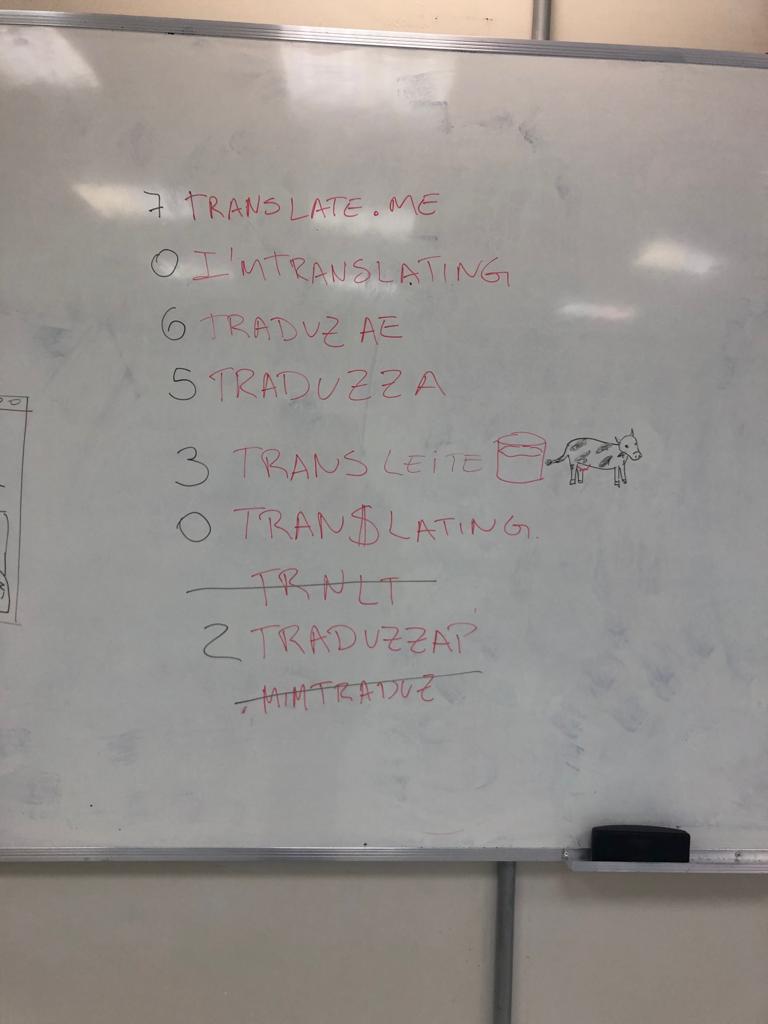 7 TRANSLATE.ME
0 I'MTRANSLATING
6 TRADUZ AE
5 TRADUZZA
3 TRANSLEITE
0 TRAN$LATING.
TRNLT
2 TRADUZZAP
.MIMTRADUZ